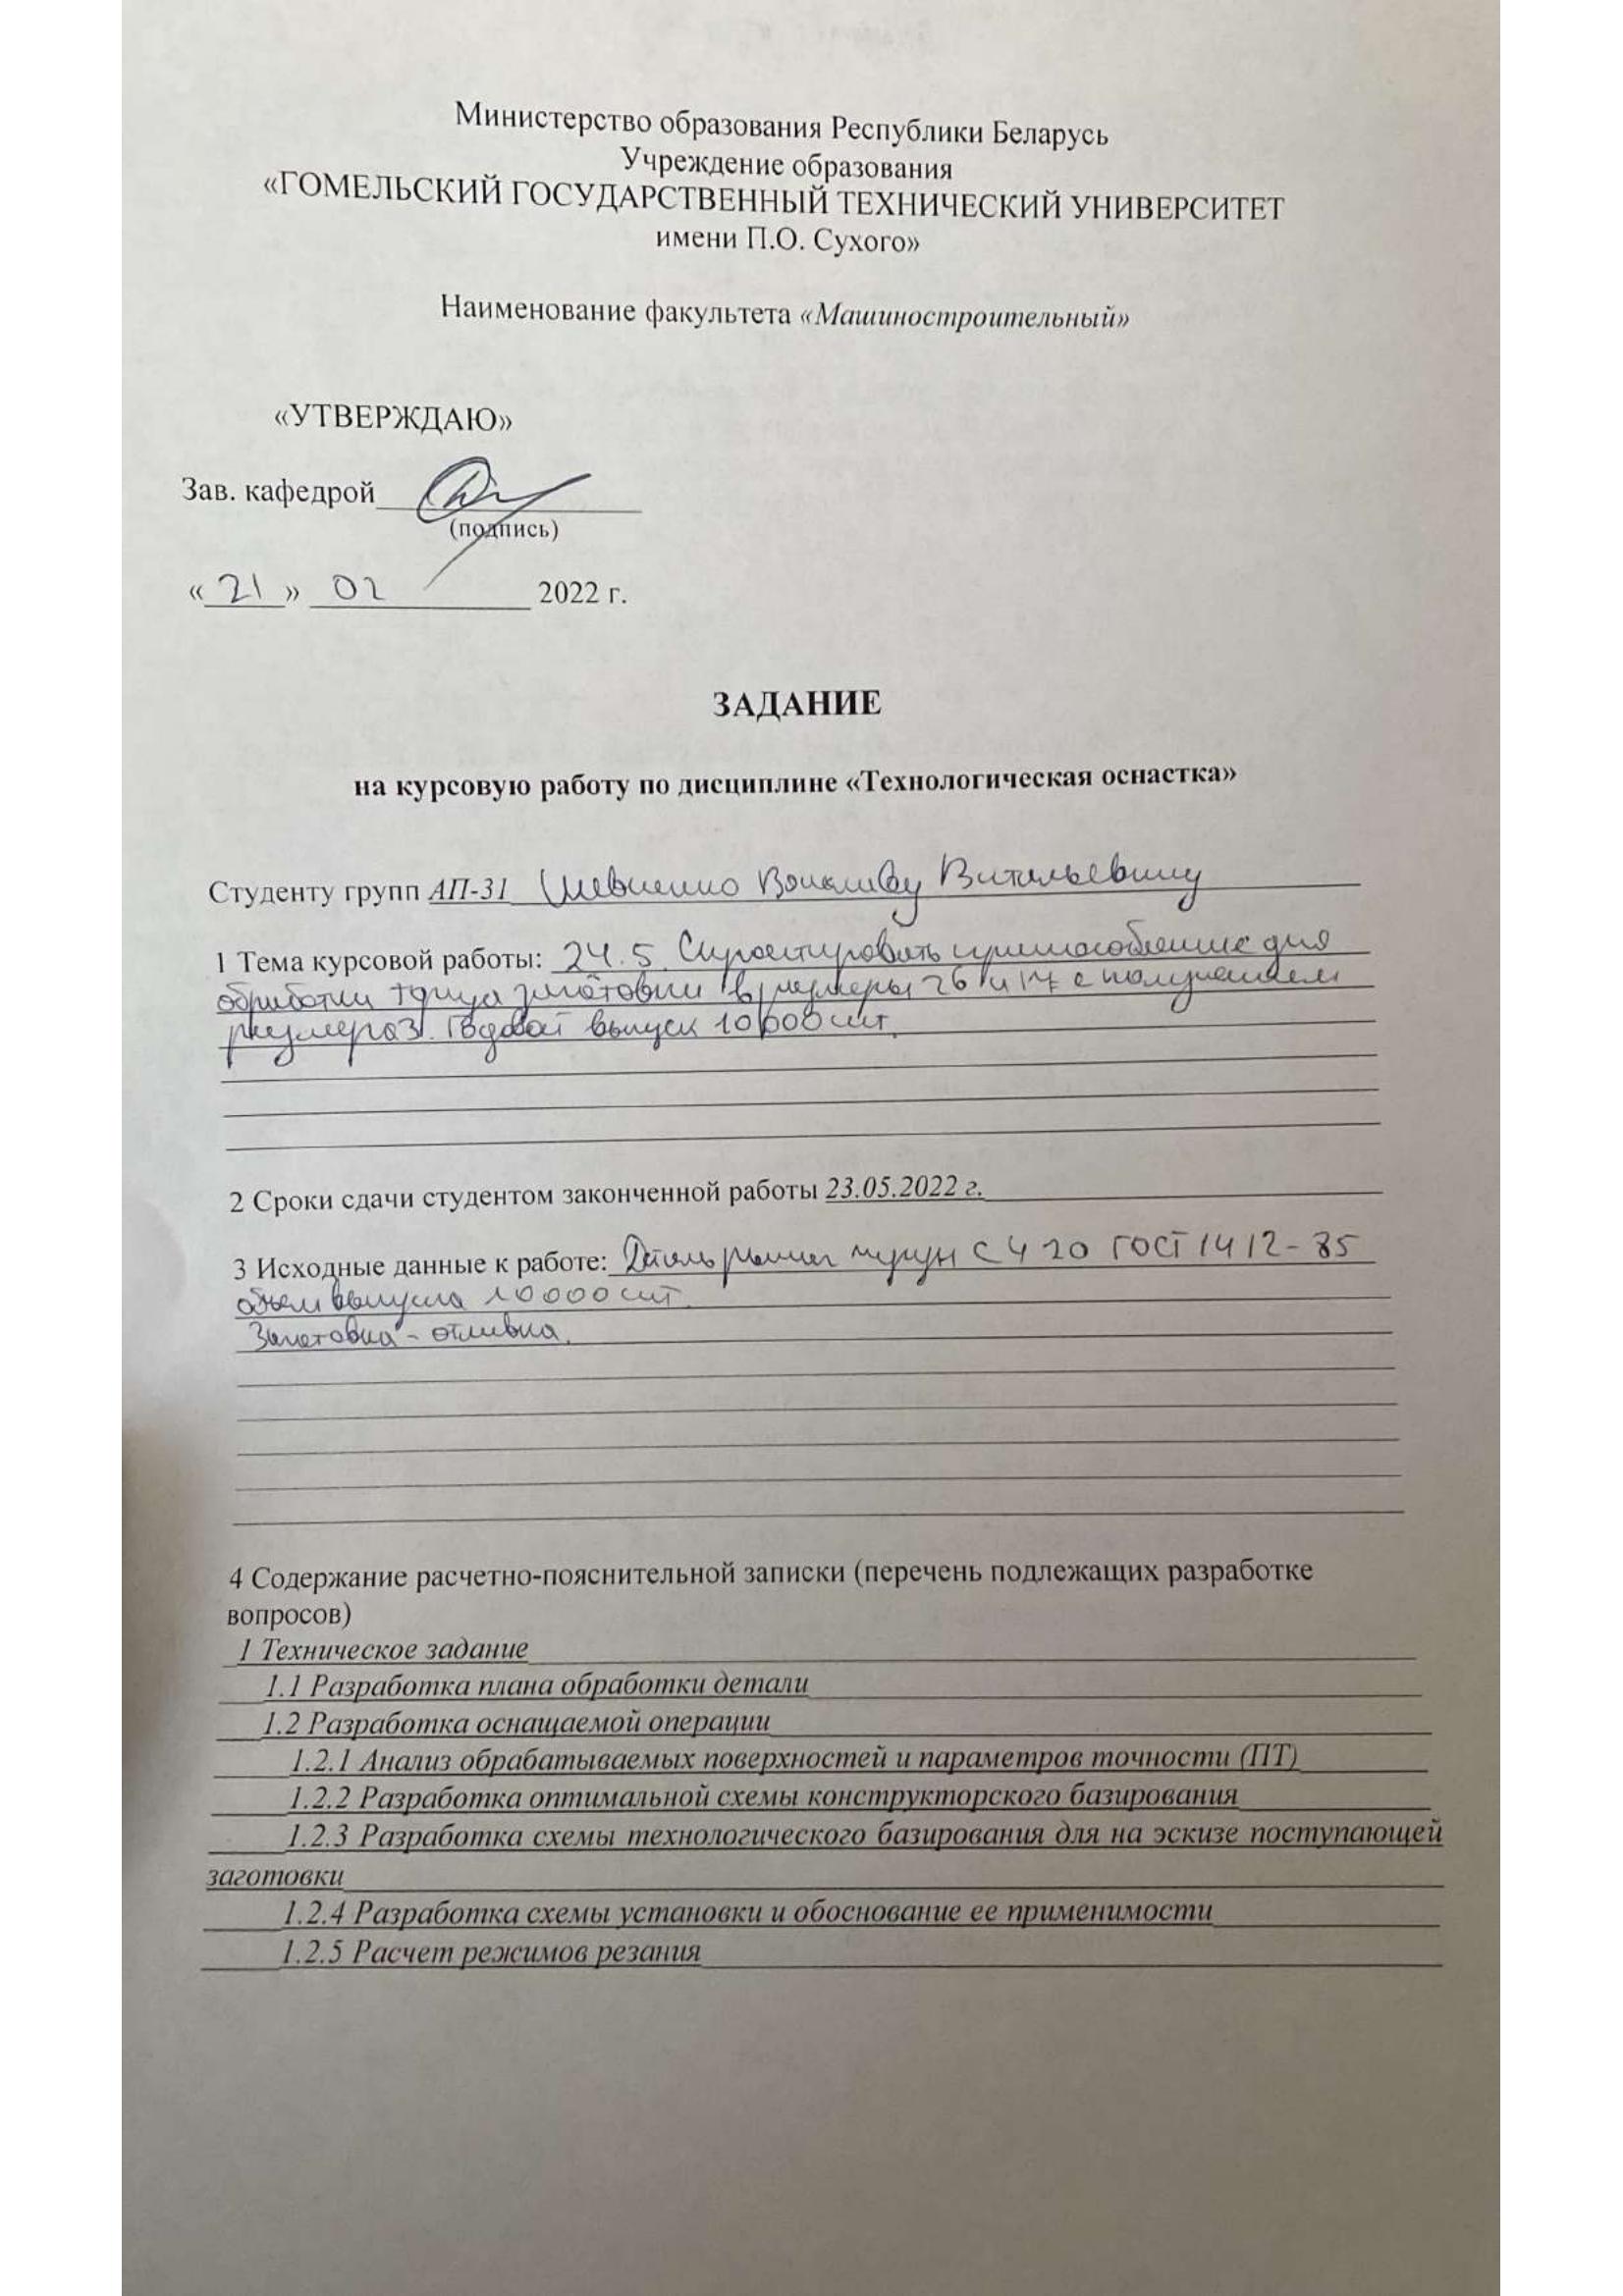 Министерство образования Республики Беларусь
Учреждение образования
«ГОМЕЛЬСКИЙ ГОСУДАРСТВЕННЫЙ ТЕХНИЧЕСКИЙ УНИВЕРСИТЕТ
имени П.О. Сухого»
Наименование факультета «Машиностроительный»
«УТВЕРЖДАЮ»
Зав. кафедрой
(подпись)
«21» 02 2022 г.
ЗАДАНИЕ
на курсовую работу по дисциплине «Технологическая оснастка»
Студенту групп АП-31 Шевченко Витальевичу
1 Тема курсовой работы: 24.5. Спроектировать приспособление для
обработки торца заготовки в размеры 26 и 17 с получением
размера 3. Годовой выпуск 10 000 шт.
2 Сроки сдачи студентом законченной работы 23.05.2022 г.
3 Исходные данные к работе: Деталь рычаг чугун СЧ 20 ГОСТ 1412-85
объем выпуска 10000 шт.
Заготовка - отливка.
4 Содержание расчетно-пояснительной записки (перечень подлежащих разработке
вопросов)
1 Техническое задание
1.1 Разработка плана обработки детали
1.2 Разработка оснащаемой операции
1.2.1 Анализ обрабатываемых поверхностей и параметров точности (ПТ)
1.2.2 Разработка оптимальной схемы конструкторского базирования
1.2.3 Разработка схемы технологического базирования для на эскизе поступающей
заготовки
1.2.4 Разработка схемы установки и обоснование ее применимости
1.2.5 Расчет режимов резания